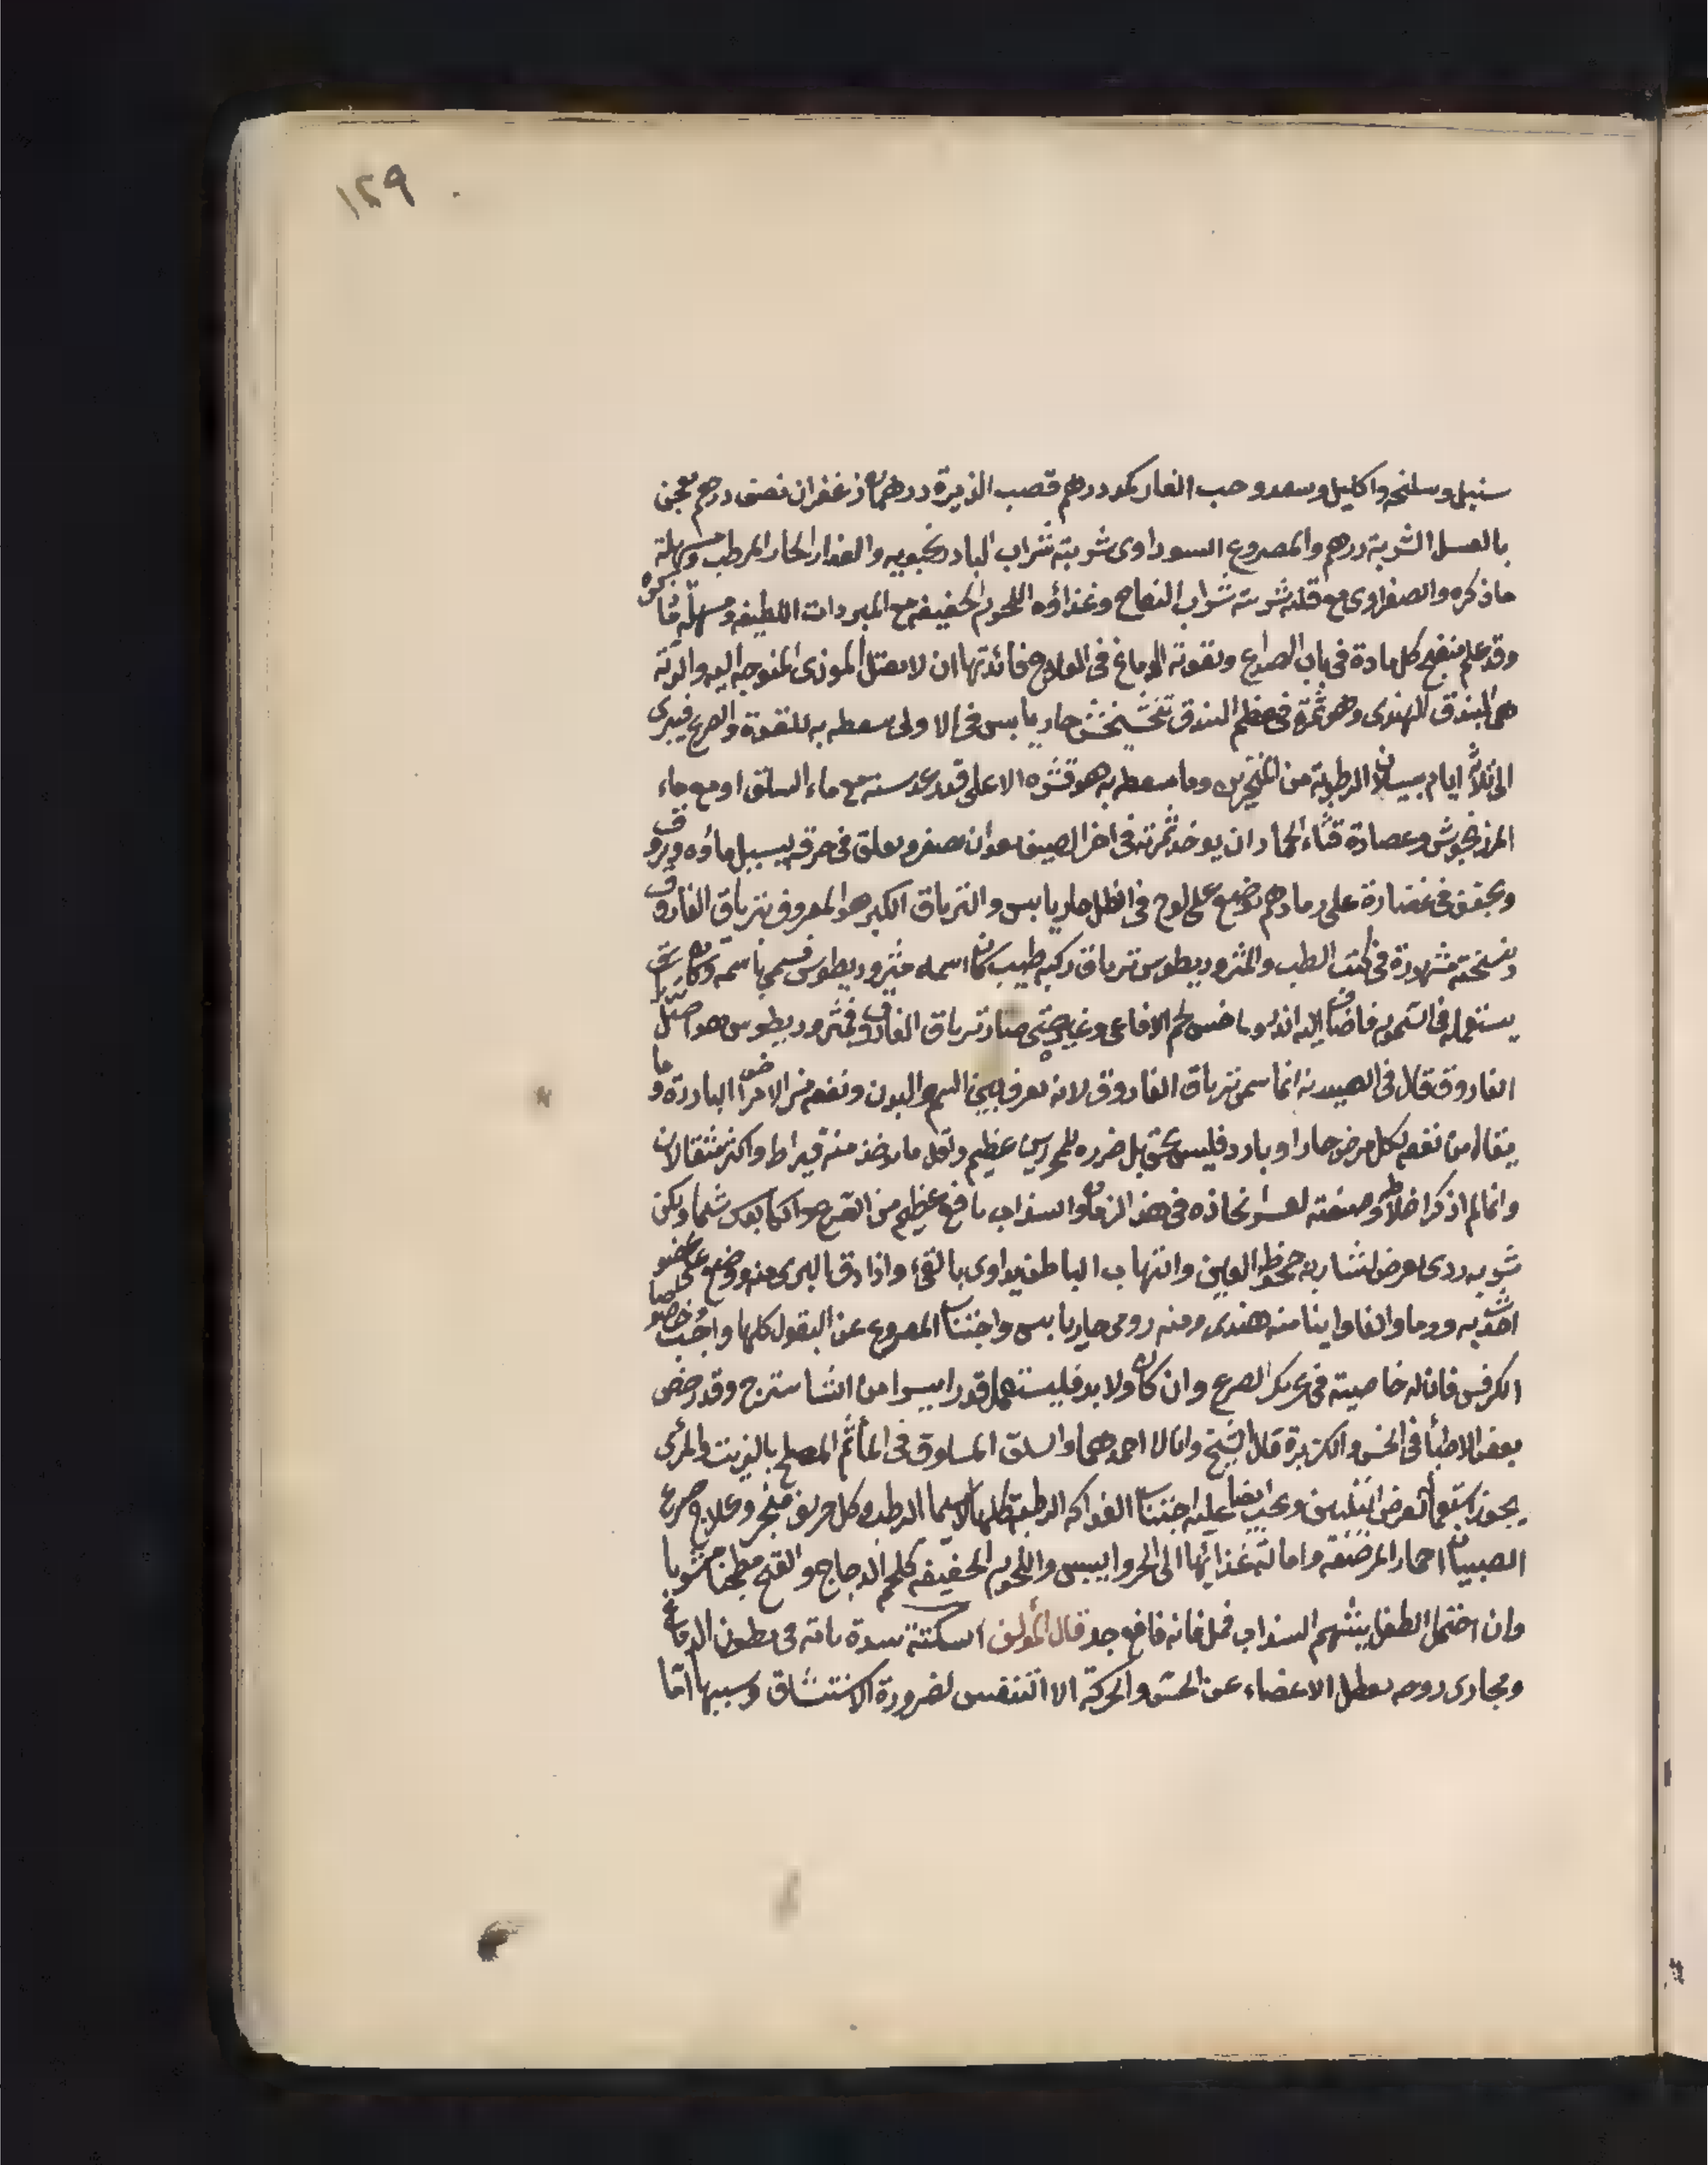 ١٢٩
سنبل وسليخه واكليل وسعد وحب الغار يكد درهم قصب الذريرة درهمان زعفران نصف درهم يعجن
بالعسل الشربة درهم والمصروع السوداوى شربته شراب البادرنجبويه والغذا الحار المرطب ومسهلة
ماذكره والصفراوى مع قلته شربته شراب التفاح وغذاؤه اللحوم الخفيفه مع المبردات اللطيفه ومسهله
وقد علم منضج كل مادة فى باب الصداع وتقوته الدماغ فى العلاج فائدتها ان لا يقبل الموذى المتوجه اليه والرته
هى البندق الهندى وهو ثمرة فى عظم البندق تتخشخش حار يابس فى الاولى يسعط به للقوة والصرع فيبرى
الى ثلاثة ايام بسيلان الرطوبة من المنخرين وما يسعط به هو قشره الاعلى قدر عدسة مع ماء السلق او مع ماء
المرزنجوش وعصارة قثاء الحمار ان يوخذ ثمرته فى اخر الصيف بعد ان يصفر ويعلق فى خرقه ليسيل ماؤه ويروق
ويجفف فى غضارة على رماد ثم يوضع على لوح فى الظل حار يابس والترياق الكبير هو المعروف بترياق الفاروق
ونسخته مشهورة فى كتب الطب والمثروديطوس ترياق ركبه طبيب كان اسمه مثروديطوس فسمى باسمه وكان
يستعمله فى السموم فاضاف اليه اندرو ماخس لحم الافاعى وغيره حتى صار ترياق الفاروق فمثروديطوس هو اصل
الفاروق قال فى الصيدنه انما سمى ترياق الفاروق لانه يفرق بين السم والبدن ونفعه من الامراض الباردة وما
يقال من نفعه لكل مرض حار او بارد فليس بحق بل ضرره للمحرورين عظيم واقل ما يوخذ منه قيراط واكثره مثقالان
وانما لم اذكر اخلاطه وصنعته لعسر اتخاذه فى هذا الزمان والسذاب نافع عظيم من الصرع هو اكلا كان شما ولكن
شربه ردى يعرض لشاربه جحوظ العين والتهاب الباطن فيداوى بالقى واذا دق البرى منه ووضع على عضو
احدث به ورما والفاوانيا منه هندى ومنه رومى حار يابس واجتناب المصروع عن البقول كلها واجب خصوصا
الكرفس فان له خاصيته فى تحريك الصرع وان كان ولا بد فليستعمل قدرا يسيرا من الشاهترج وقد رخص
بعض الاطبا فى الخس والكزبرة قال الشيخ وانا لا احمدهما والسلق المسلوق فى الماء ثم المصلح بالزيت والمرى
يجوز استعماله لعرض التليين ويجب ايضا عليه اجتناب الفواكه الرطبة كلها لاسيما الرطب وكل حريف مبخر وعلاج صرع
الصبيان اصلاح المرضعة وامالة غذائها الى الحر واليبس واللحوم الخفيفه كلحم الدجاج والقبج مطجنا مشويا
وان احتمل الطفل شم السذاب فعل فانه نافع جدا قال المؤلف السكتة سدة تامة فى بطون الدماغ
ومجارى روحه يعطل الاعضاء عن الحس والحركة الا التنفس لضرورة الاستنشاق وسببها اما